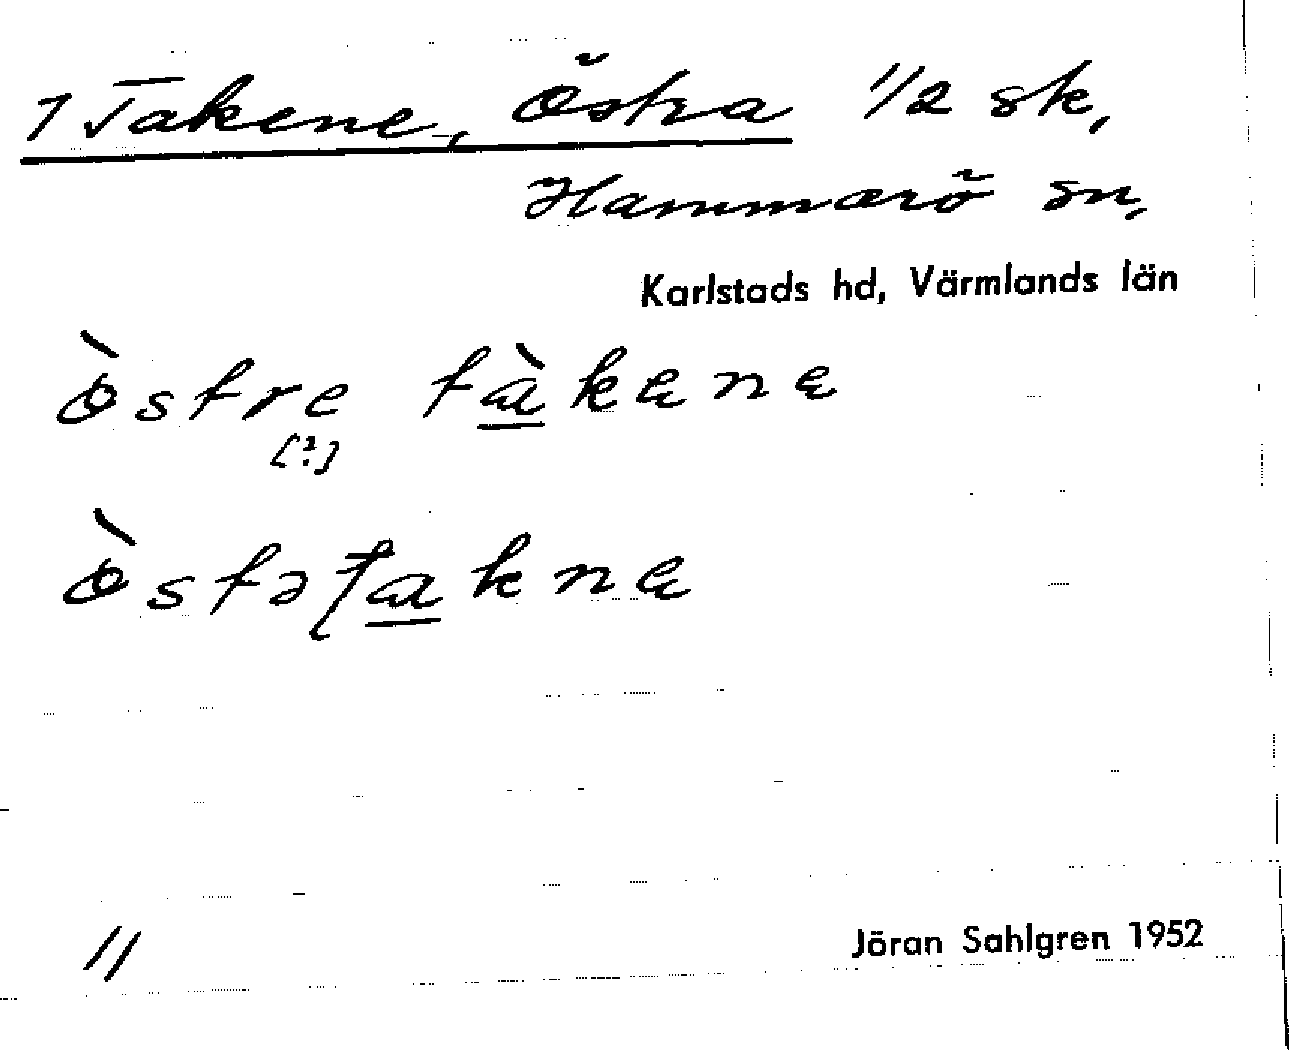 1 Takene, Östra 1/2 sk,
Hammarö sn,
Karlstads hd, Värmlands län
òstre tàkena
[?]
òstətakna
11
Jöran Sahlgren 1952